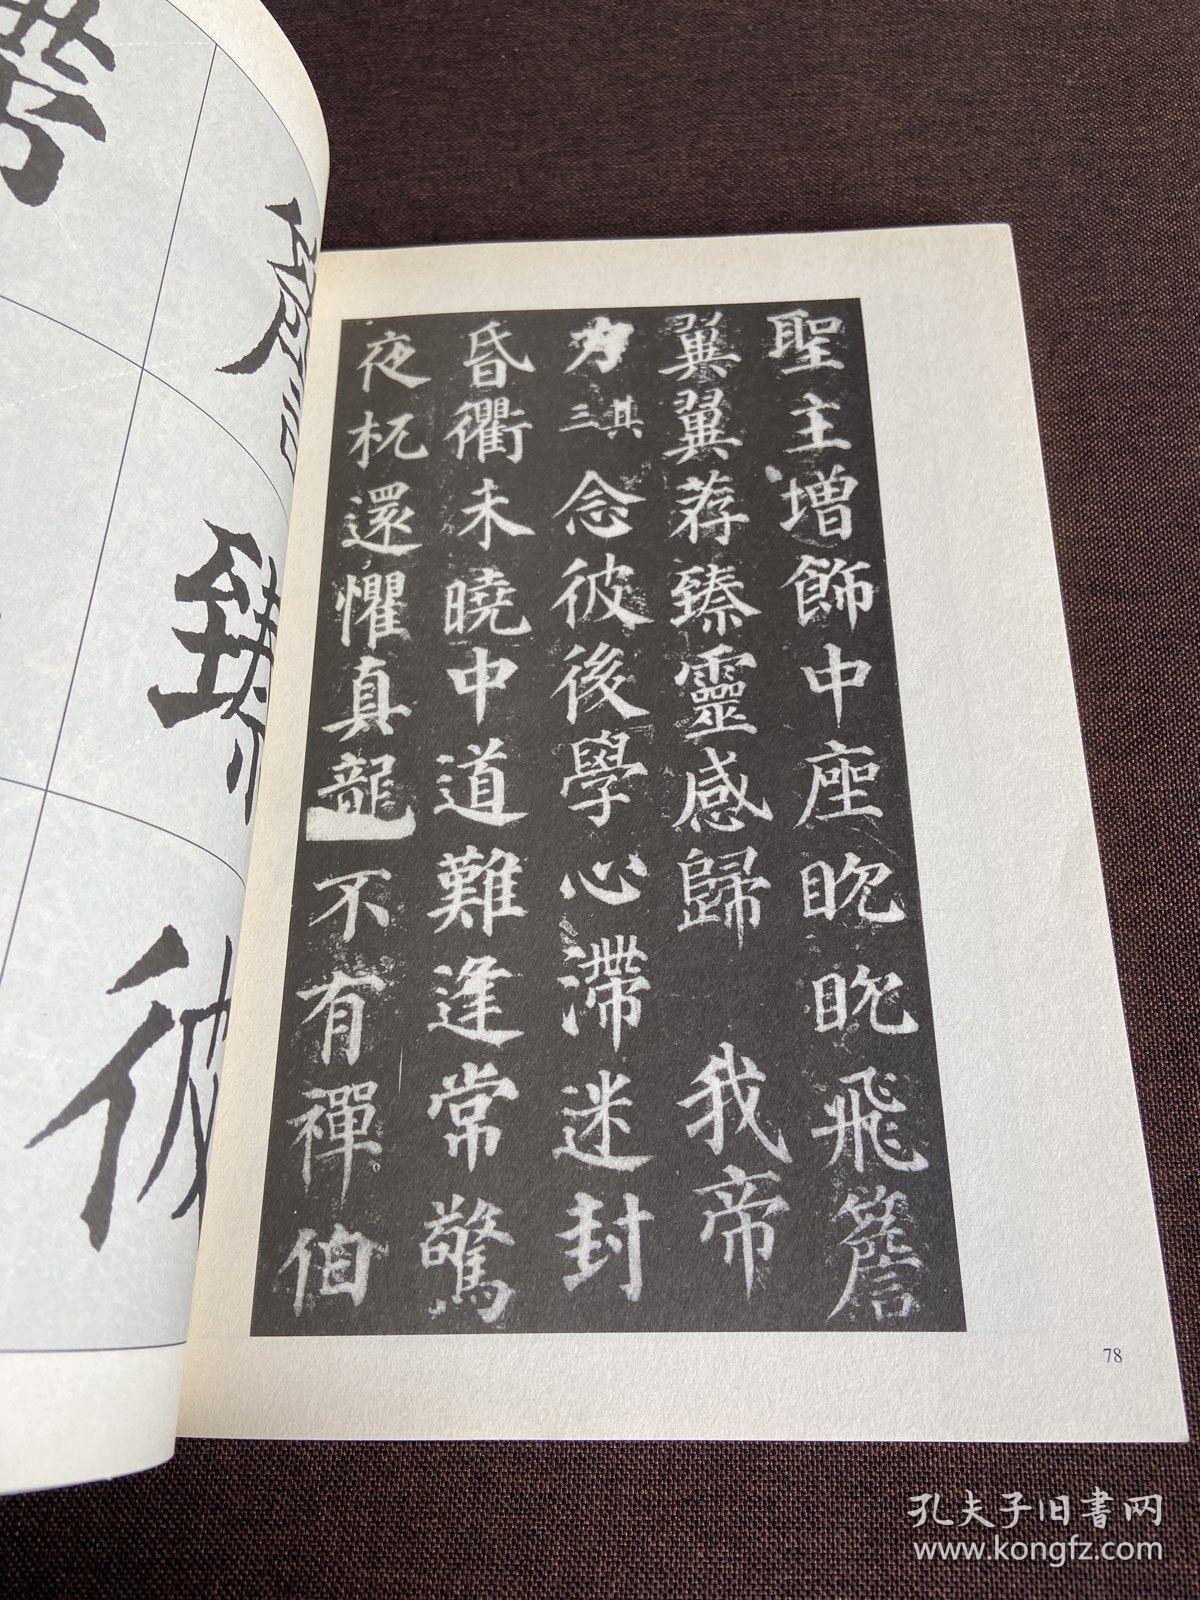 聖主増飾中座眈眈飛簷
翼翼荐臻靈感歸我帝
力其三念彼後學心滯迷封
昏衢未曉中道難逢常驚
夜杌還懼真龍不有禪伯
臻
彼
78
孔夫子旧書网
www.kongfz.com